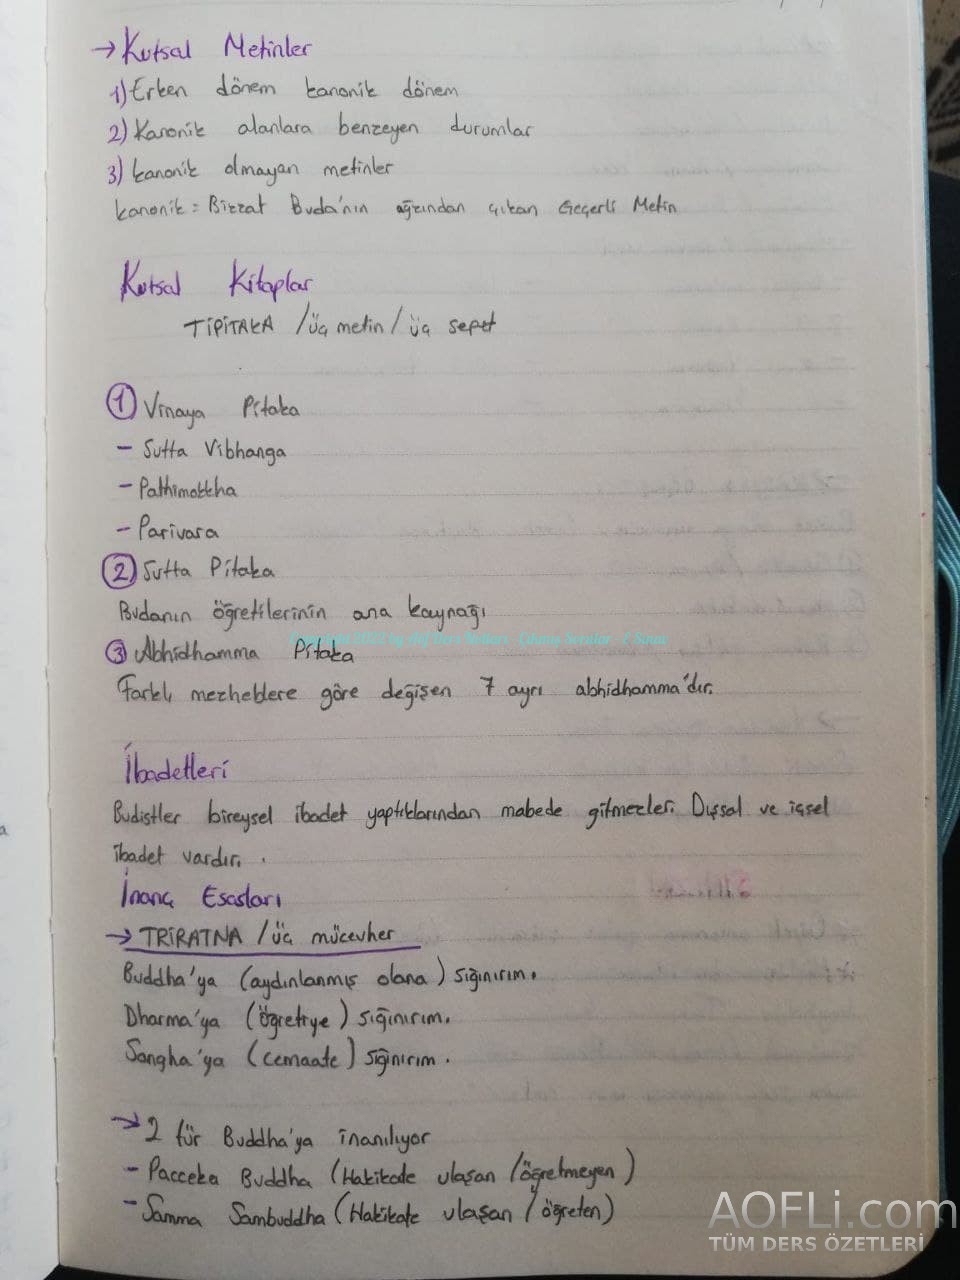 → Kutsal Metinler
1) Erken dönem kanonik dönem
2) Kanonik alanlara benzeyen durumlar
3) kanonik olmayan metinler
kanonik = Bizzat Buda'nın ağzından çıkan Geçerli Metin
Kutsal Kitaplar
TİPİTAKA / üç metin / üç sepet
① Vinaya Pitaka
- Sutta Vibhanga
- Pathimokkha
- Parivara
② Sutta Pitaka
Budanın öğretilerinin ana kaynağı
③ Abhidhamma Pitaka
Farklı mezheblere göre değişen 7 ayrı abhidhamma'dır.
İbadetleri
Budistler bireysel ibadet yaptıklarından mabede gitmezler. Dışsal ve içsel
ibadet vardır.
İnanç Esasları
→ TRİRATNA / üç mücevher
Buddha'ya (aydınlanmış olana) sığınırım.
Dharma'ya (öğretiye) sığınırım.
Sangha'ya (cemaate) sığınırım.
→ 2 tür Buddha'ya inanılıyor
- Pacceka Buddha (Hakikate ulaşan / öğretmeyen)
- Samma Sambuddha (Hakikate ulaşan / öğreten)
AOFLi.com
TÜM DERS ÖZETLERİ